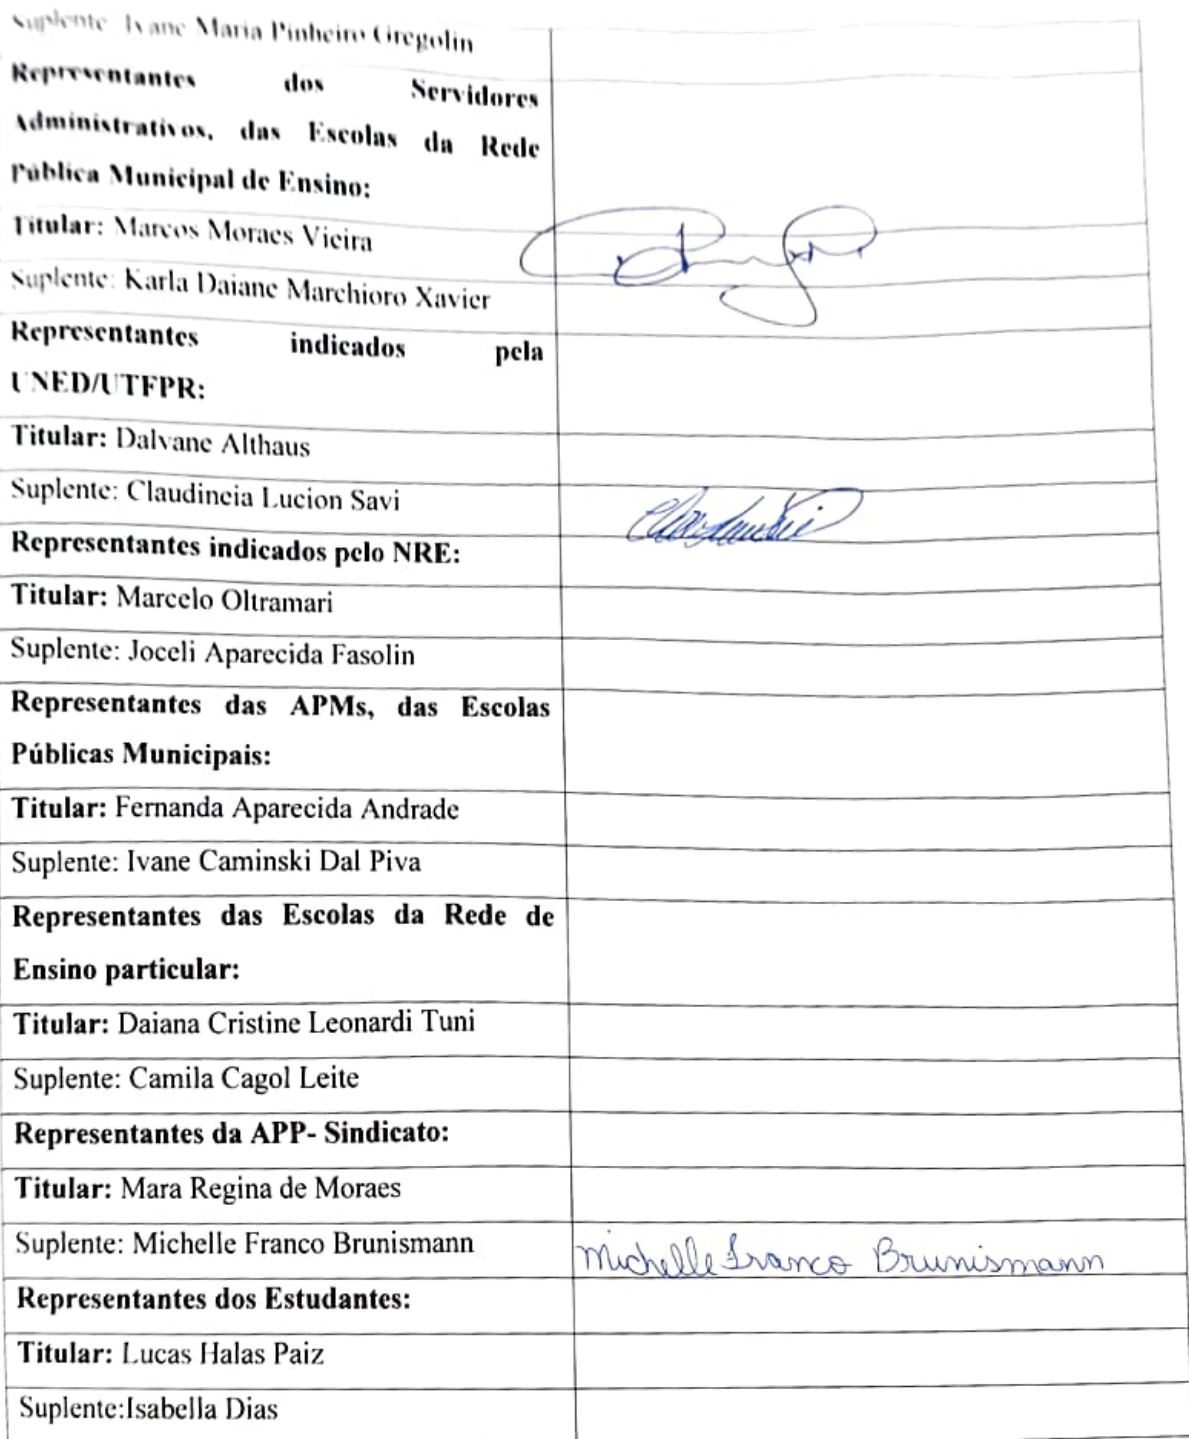 Suplente Ivane Maria Pinheiro Gregolin
Representantes dos Servidores
Administrativos, das Escolas da Rede
Pública Municipal de Ensino:
Titular: Marcos Moraes Vieira
Suplente: Karla Daiane Marchioro Xavier
Representantes indicados pela
UNED/UTFPR:
Titular: Dalvane Althaus
Suplente: Claudineia Lucion Savi
Representantes indicados pelo NRE:
Titular: Marcelo Oltramari
Suplente: Joceli Aparecida Fasolin
Representantes das APMs, das Escolas
Públicas Municipais:
Titular: Fernanda Aparecida Andrade
Suplente: Ivane Caminski Dal Piva
Representantes das Escolas da Rede de
Ensino particular:
Titular: Daiana Cristine Leonardi Tuni
Suplente: Camila Cagol Leite
Representantes da APP- Sindicato:
Titular: Mara Regina de Moraes
Suplente: Michelle Franco Brunismann
Michelle Franco Brunismann
Representantes dos Estudantes:
Titular: Lucas Halas Paiz
Suplente:Isabella Dias